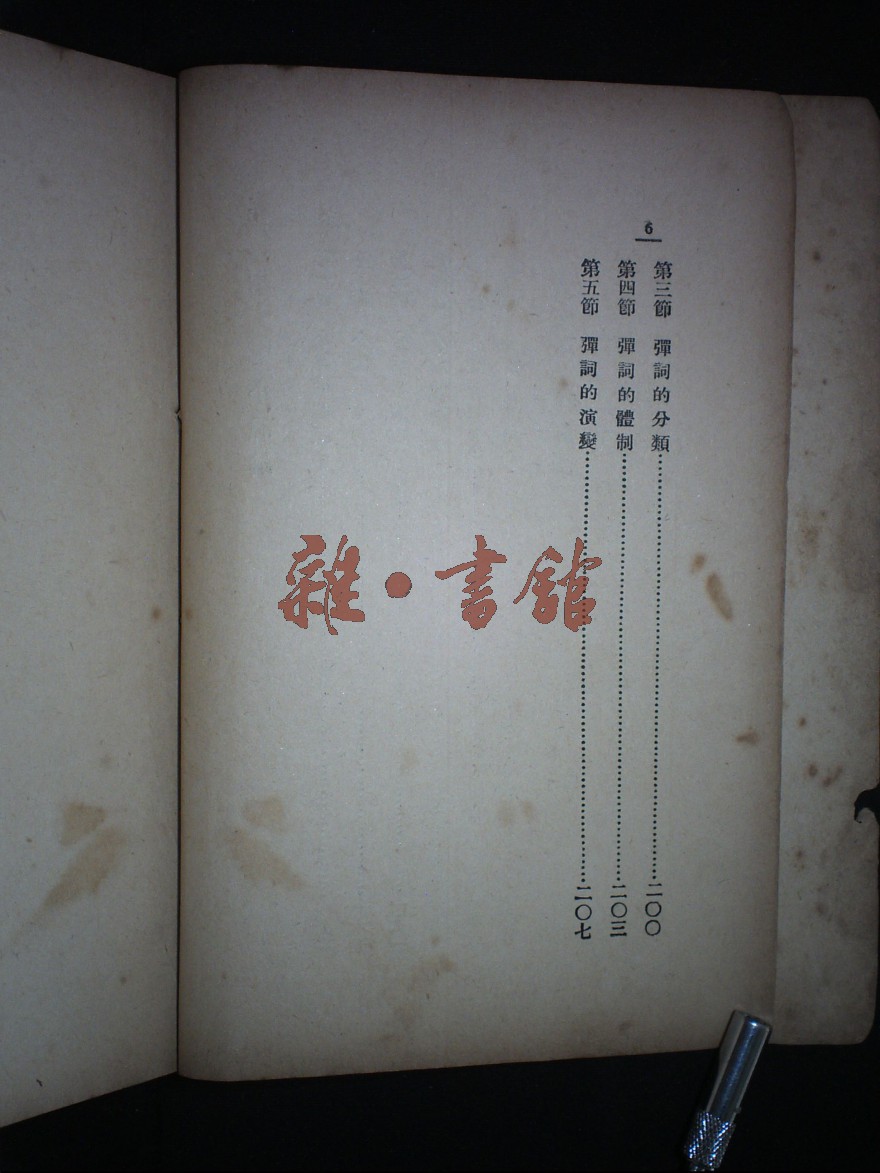 6
第三節 彈詞的分類……二〇〇
第四節 彈詞的體制……二〇三
第五節 彈詞的演變……二〇七
雜·書館